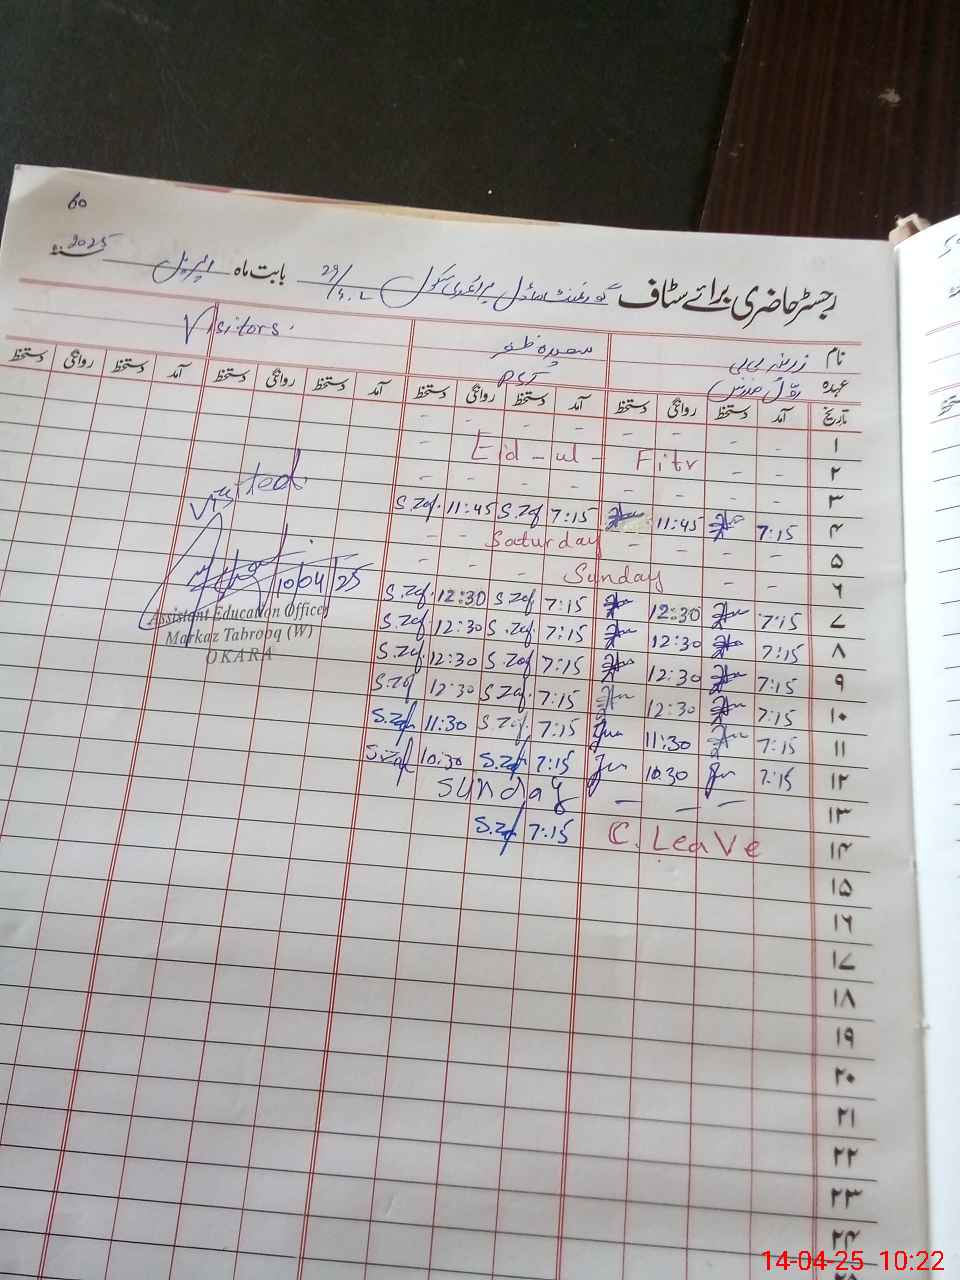 60
رجسٹر حاضری برائے سٹاف گورنمنٹ ماڈل پرائمری سکول 29/ بابت ماہ اپریل سنہ 2025
نام زرینہ بی بی سعیدہ ظفر Visitors.
عہدہ PST
تاریخ آمد دستخط روانگی دستخط آمد دستخط روانگی دستخط آمد دستخط روانگی دستخط آمد دستخط روانگی دستخط
۱ - - - - - - - -
۲ - - Eid - ul - Fitr -
۳ - - - - - - - -
۴ 7:15 11:45 7:15 S.Zaf 11:45 S.Zaf.
۵ - - Saturday - - -
۶ - - Sunday - - -
۷ 7:15 12:30 7:15 S.Zaf 12:30 S.Zaf.
۸ 7:15 12:30 7:15 S.Zaf. 12:30 S.Zaf.
۹ 7:15 12:30 7:15 S.Zaf 12:30 S.Zaf.
۱۰ 7:15 12:30 7:15 S.Zaf. 12:30 S.Zaf
۱۱ 7:15 11:30 7:15 S.Zaf. 11:30 S.Zaf
۱۲ 7:15 10:30 7:15 S.Zaf 10:30 S.Zaf
۱۳ Sunday - - -
۱۴ C. Leave 7:15 S.Zaf
۱۵
۱۶
۱۷
۱۸
۱۹
۲۰
۲۱
۲۲
۲۳
۲۴
Visited.
10/04/25
Assistant Education Officer
Markaz Tabrooq (W)
OKARA
14-04-25 10:22